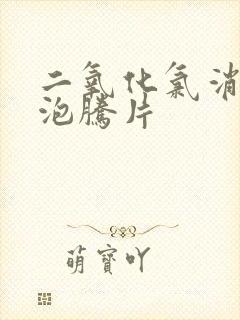 二氧化氯消
泡腾片
萌寶吖